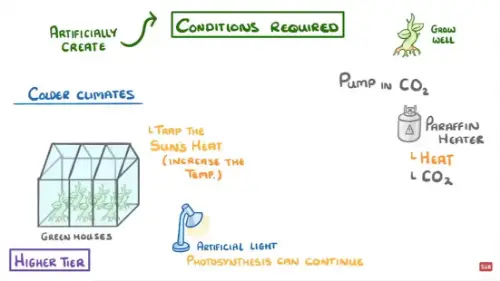 ARTIFICIALLY
CREATE
CONDITIONS REQUIRED
GROW
WELL
COLDER CLIMATES
PUMP IN CO₂
TRAP THE
SUN'S HEAT
(INCREASE THE
TEMP.)
PARAFFIN
HEATER
HEAT
CO₂
GREEN HOUSES
ARTIFICIAL LIGHT
PHOTOSYNTHESIS CAN CONTINUE
HIGHER TIER